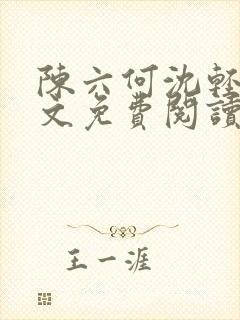 陳六何沈輕
文免費閱讀
王一涯